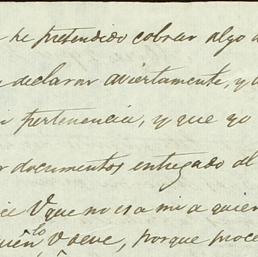 he pretendido cobrar algo
declarar aviertamente, y
pertenencia, y que yo
documentos entregado al
V que no es a mi a quien
lo
V deve, porque proce